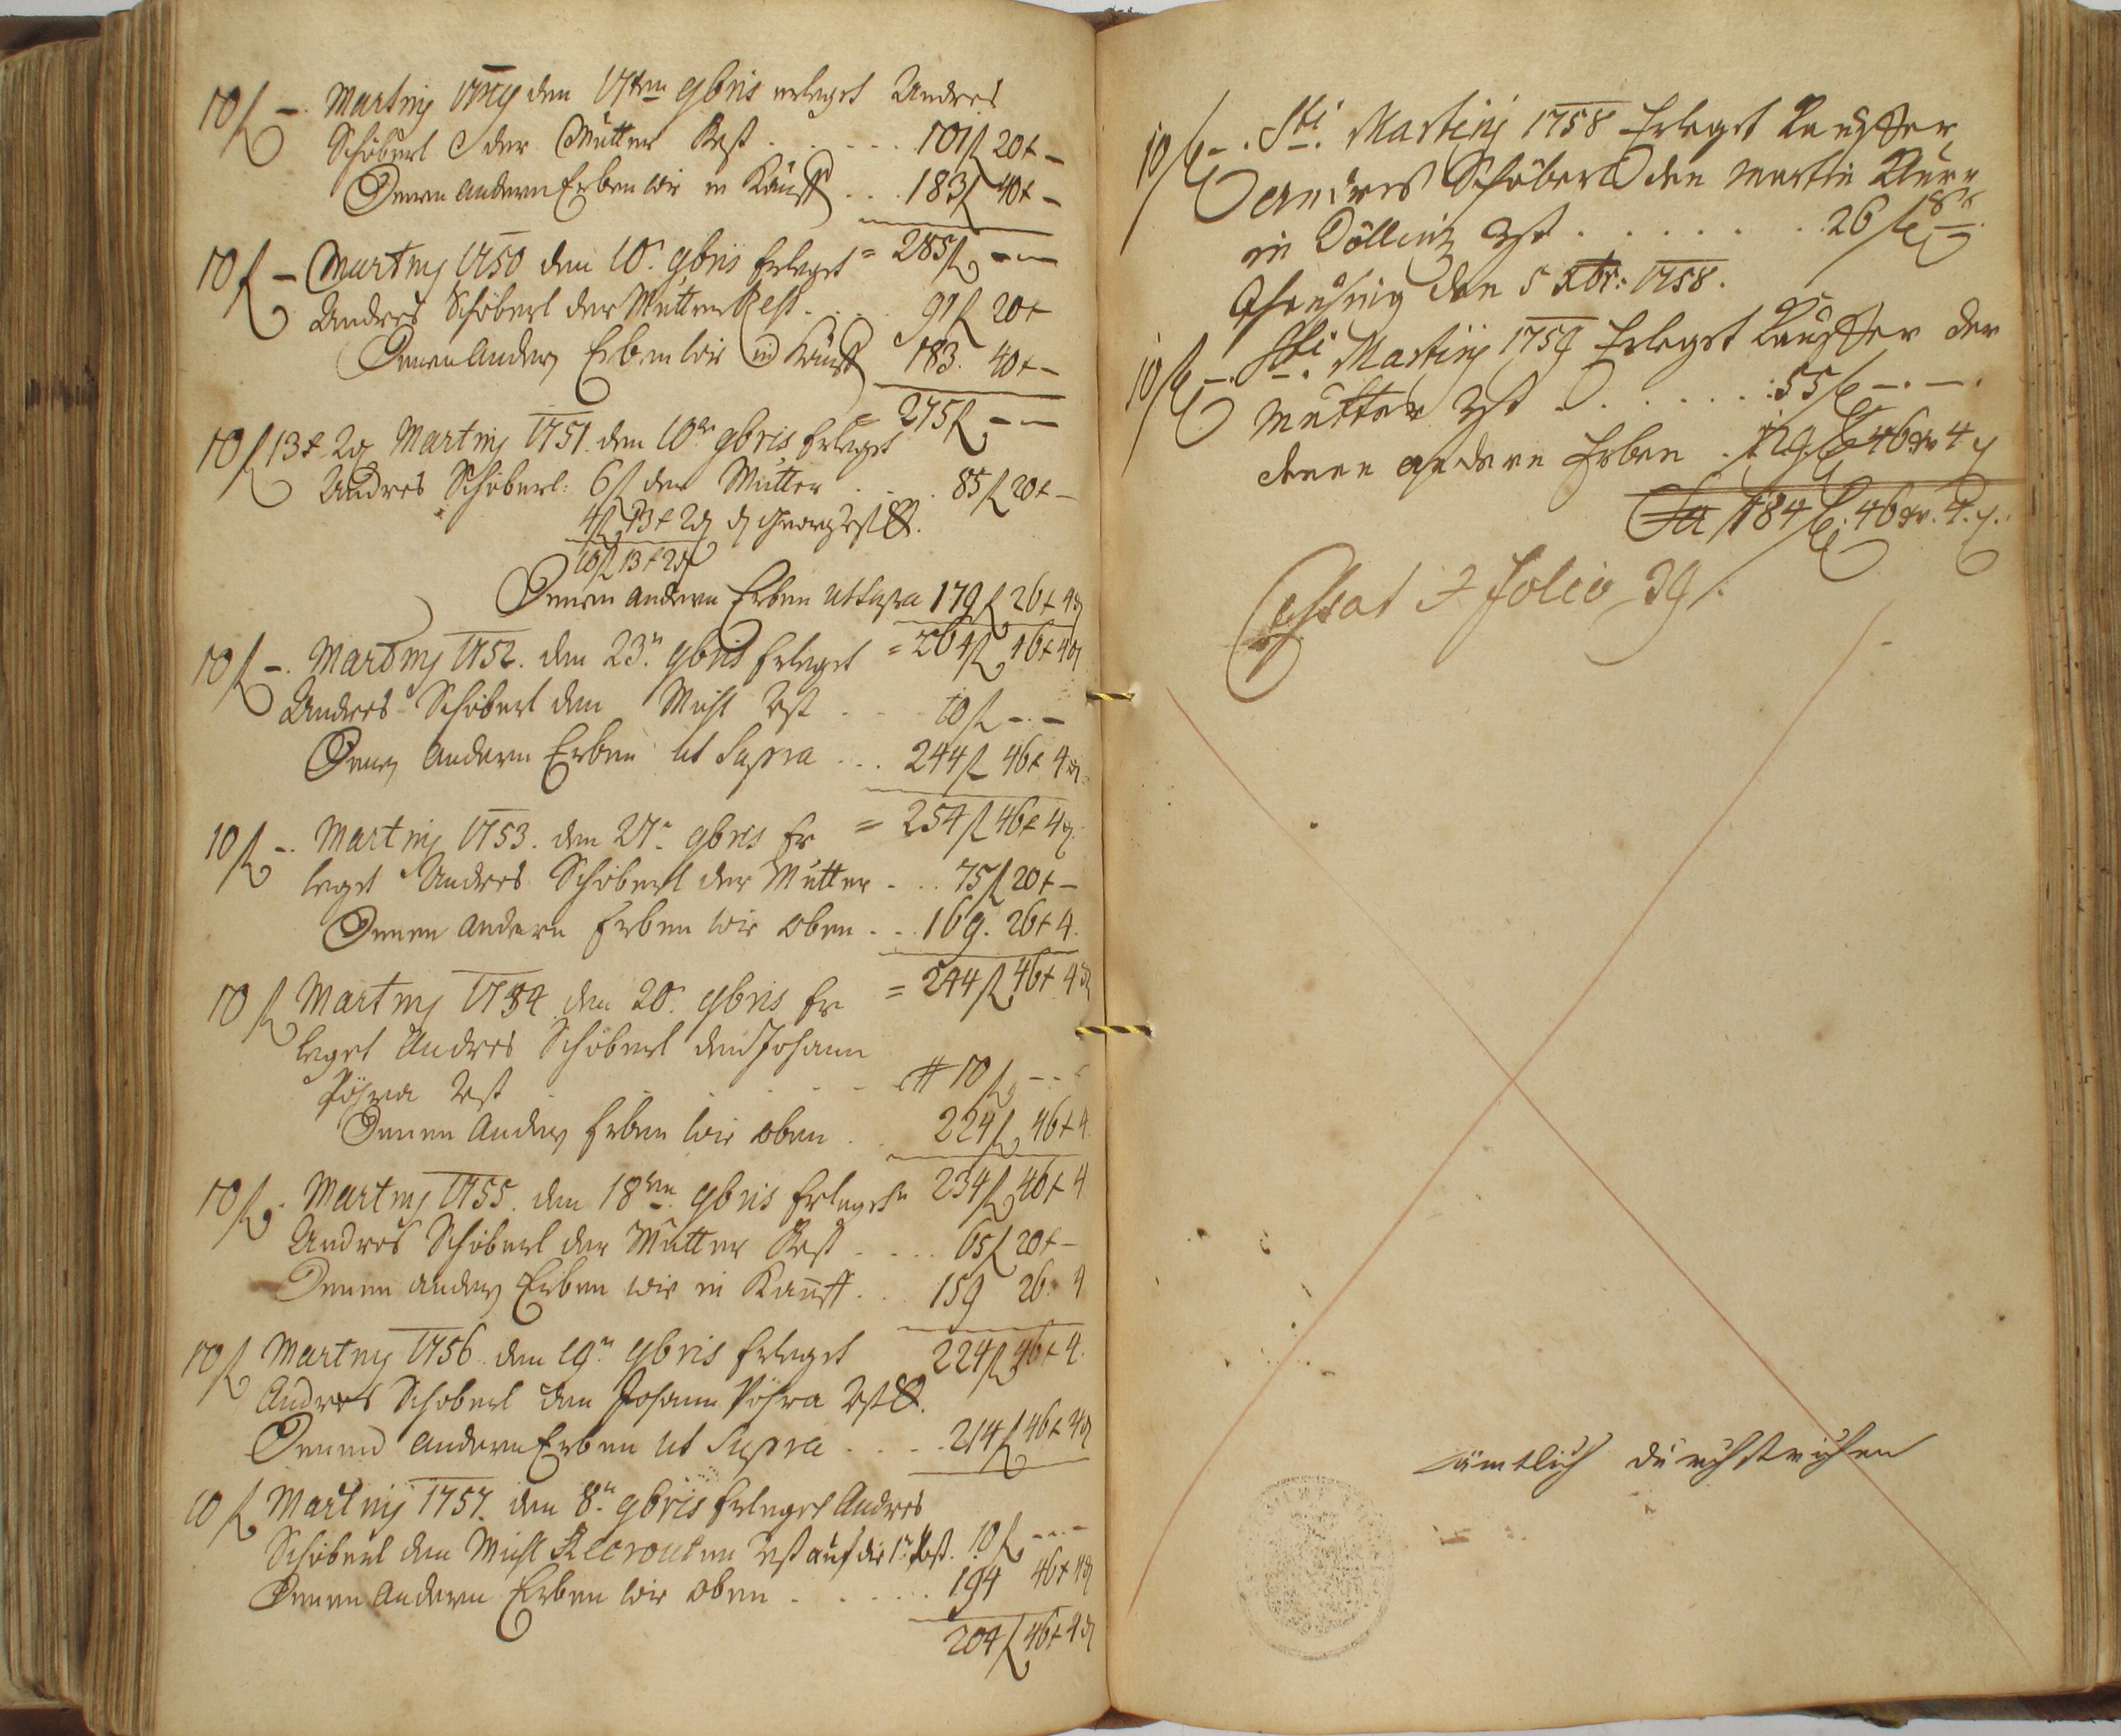 10 f – Martinj 1749 den 17ten 9bris erleget Andres
Schöberl der Mutter Rest . . . 101 f 20 x –
Denen andern Erben wie in Kauff . . 183 f 40 x –
= 285 f – –
10 f – Martinj 1750 den 10. 9bris Erleget
Andres Schöberl der Mutter Rest . . . 91 f 20 x
Denen Andern Erben wie in Kauff 183. 40 x –
= 275 f – –
10 f 13 x 2 d Martinj 1751. den 10ten 9bris Erleget
Andres Schöberl: 6 f der Mutter . . . 85 f 20 x –
4 f 13 x 2 d
10 f 13 x 2 d
Denen andern Erben ut Supra 179 f 26 x 4 d
= 264 f 46 x 4 d
10 f – Martinj 1752. den 23n 9bris Erleget
Andres Schöberl dem Michl Rest . . . 10 f – –
Denen andern Erben ut Supra . . . 244 f 46 x 4 d
= 254 f 46 x 4 d
10 f – Martinj 1753. den 27n 9bris Er
leget Andres Schöberl der Mutter . . . 75 f 20 x –
Denen andern Erben wie oben . . . 169. 26 x 4
= 244 f 46 x 4 d
10 f Martinj 1754 den 20. 9bris Er
leget Andres Schöberl dem Johann
Rest . . . 10 f – –
Denen Andern Erben wie oben . . 224 f 46 x 4
234 f 46 x 4
10 f Martinj 1755. den 18ten 9bris Erleget
Andres Schöberl der Mutter Rest . . . 65 f 20 x –
Denen andern Erben wie in Kauff . . 159 26. 4
224 f 46 x 4.
10 f Martinj 1756 den 19n 9bris Erleget
Andres Schöberl dem Johann
Denen andern Erben ut Supra . . . 214 f 46 x 4 d
10 f Martinj 1757. den 8n 9bris Erleget Andres
Schöberl dem Michl Rest auf die 10 f – –
Denen andern Erben wie oben . . . 194 46 x 4 d
204 f 46 x 4 d
10 f – Sti. Martinj 1758 Erleget Kauffer
Andres Schöberl dem Martin
in . . . 26 f
den 5 Xbr: 1758.
10 f – Sti. Martinj 1759 Erleget Kauffer der
Mutter . . . 55 f – –
denen andern Erben . 129 f 46 xr 4 d
Sa 184 f. 46 xr. 4 d.
Folio 39.
sämtlich durchstrichen